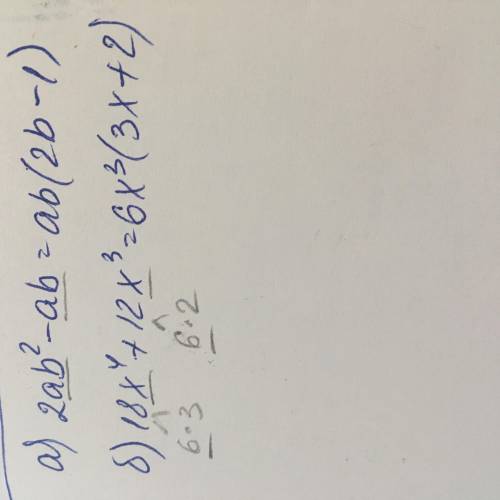 а) 2ab² - ab = ab(2b - 1)
б) 18x⁴ + 12x³ = 6x³(3x + 2)
6·3 6·2